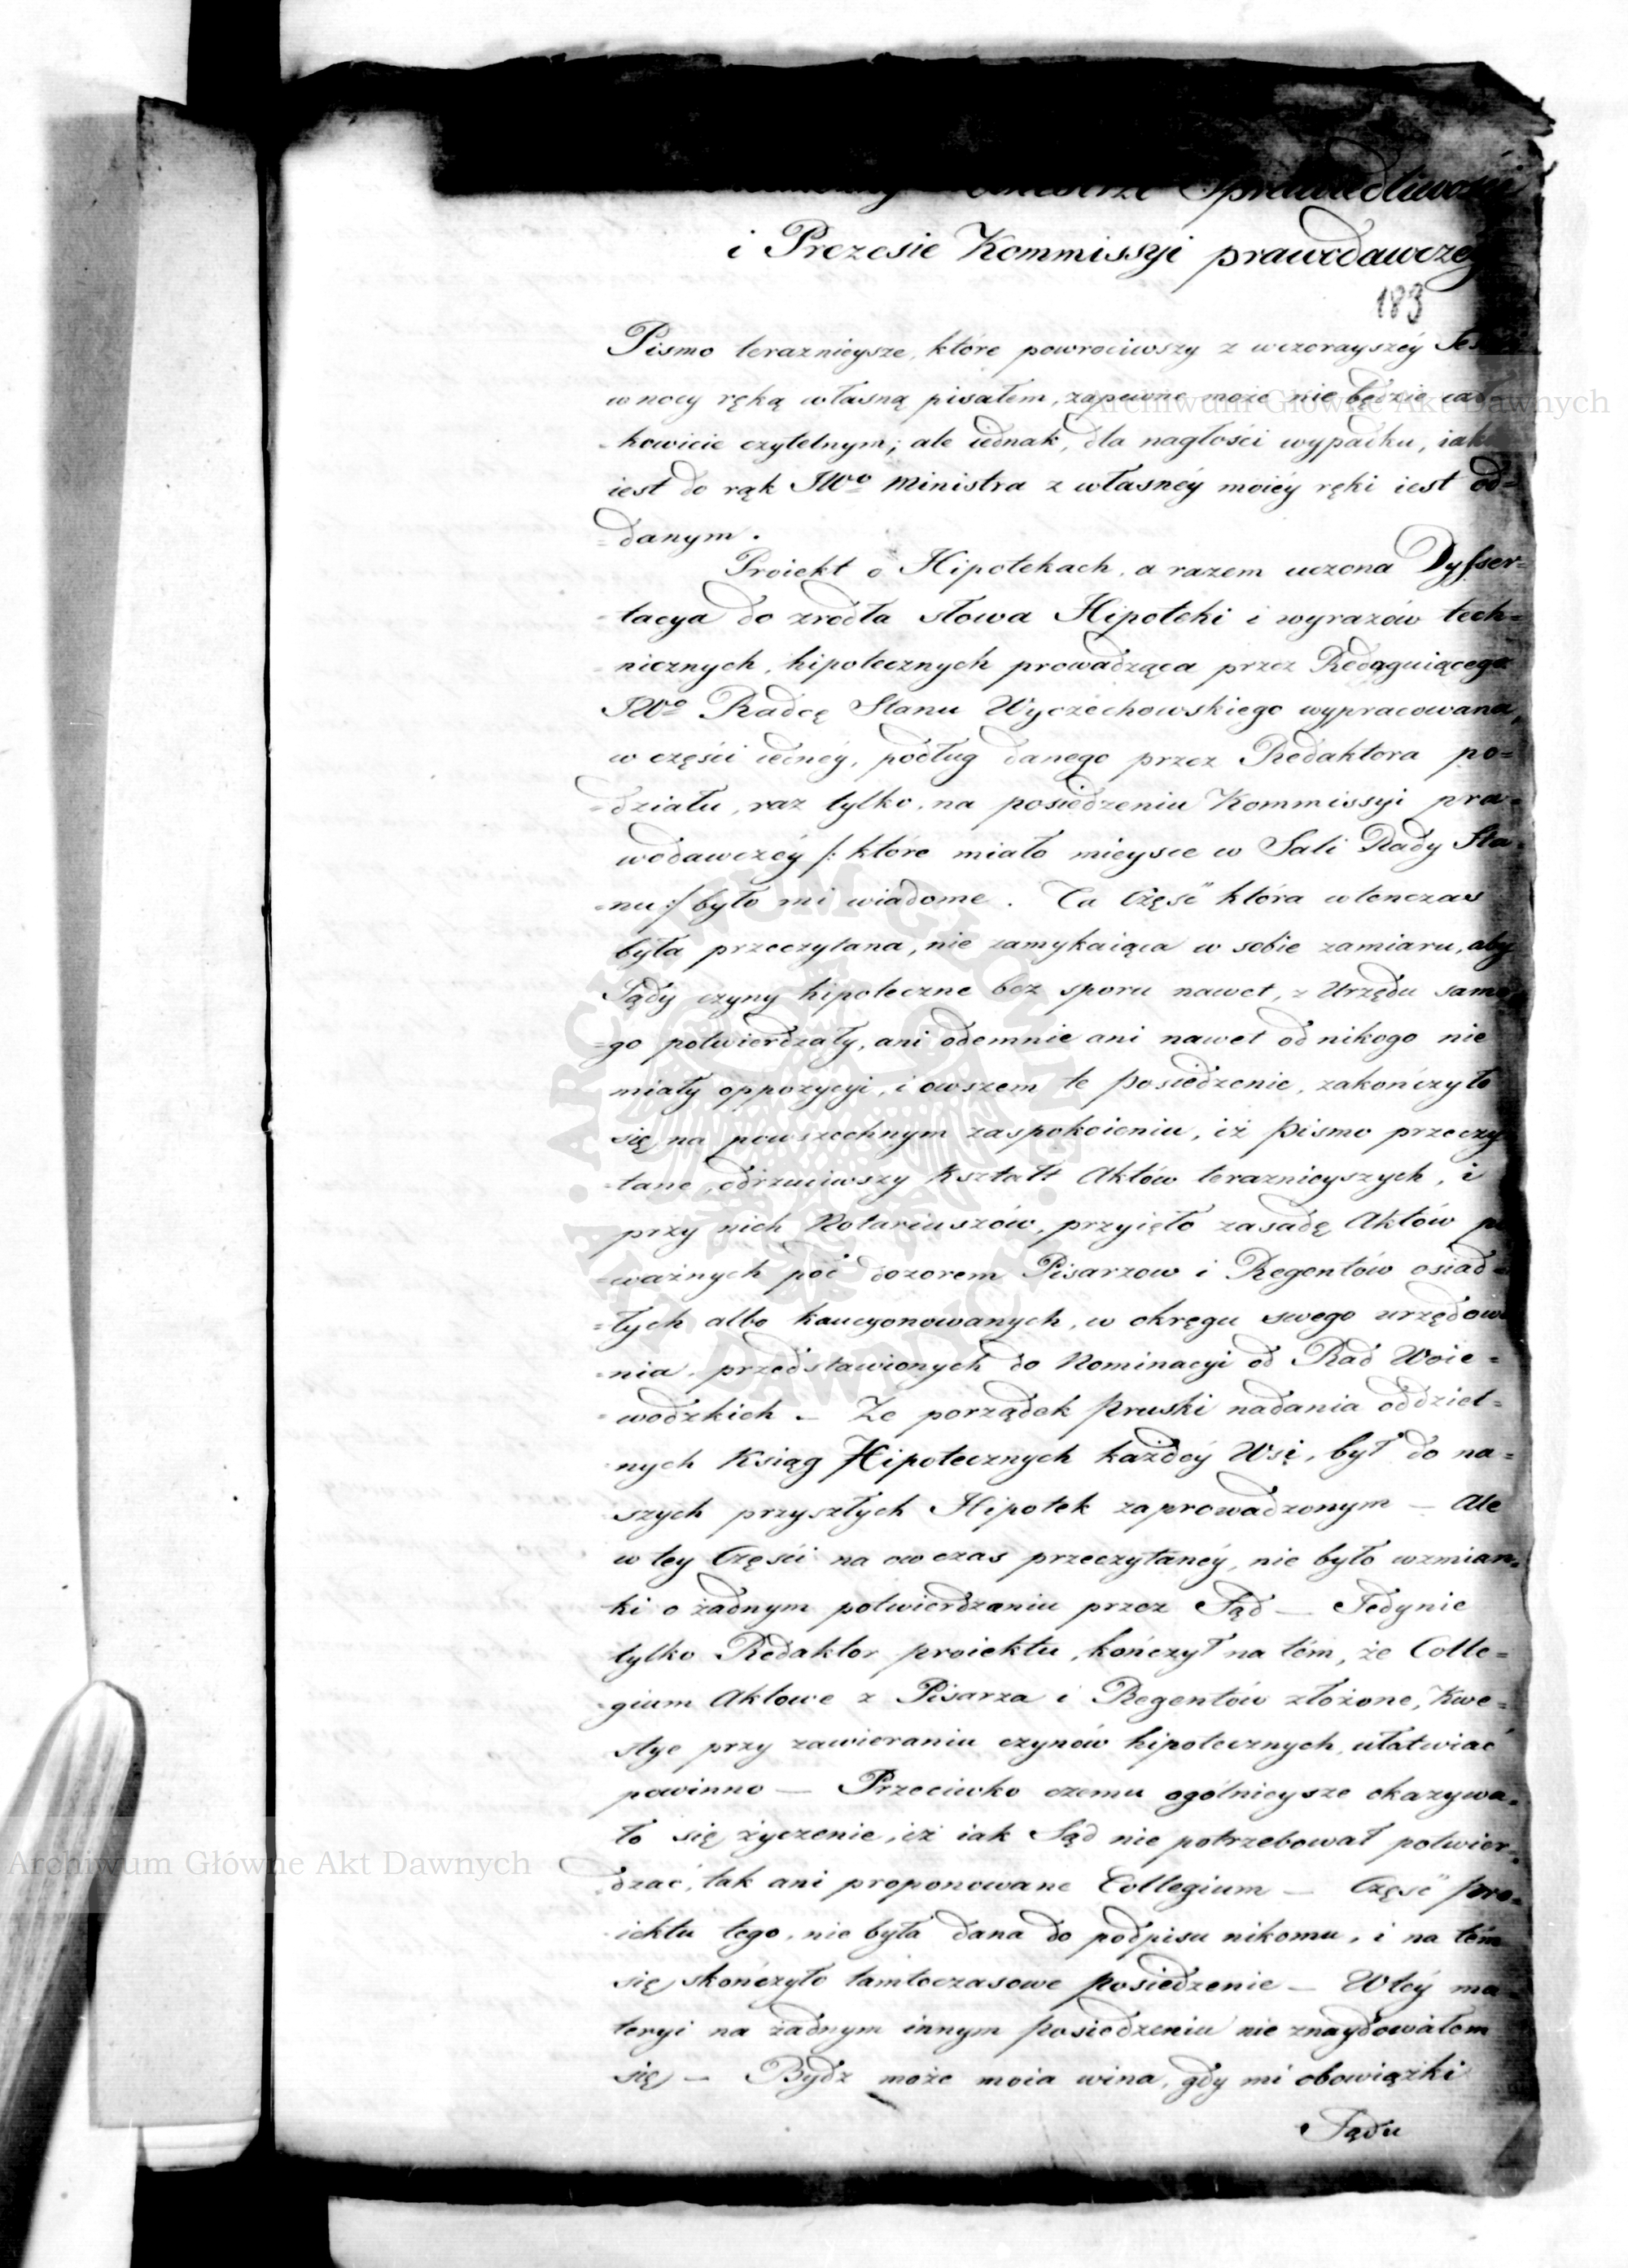 Sprawiedliwości
i Prezesie Kommissyi prawodawczey
183
Pismo teraznieysze, które powrociwszy z wczorayszéy
w nocy ręką własną pisałem, zapewne może nie będzie cał-
-kowicie czytelnym; ale iednak, dla nagłości wypadku, iak
iest do rąk JWo Ministra z własnéy moiéy ręki iest od=
=danym.
Proiekt o Hipotekach, a razem uczona Dysser=
-tacya do zrodła słowa Hipoteki i wyrazów tech=
-nicznych, hipotecznych prowadząca przez Redaguiącego
JWo Radcę Stanu Wyczechowskiego wypracowana,
w części iednéy, podług danego przez Redaktora po=
=działu, raz tylko, na posiedzeniu Kommissyi pra=
wodawczéy /: które miało mieysce w Sali Rady Sta=
=nu :/ było mi wiadome. Ta Część która wtenczas
była przeczytana, nie zamykaiąca w sobie zamiaru, aby
Sądy czyny hipoteczne bez sporu nawet, z Urzędu same
=go potwierdzały, ani odemnie ani nawet od nikogo nie
miały oppozycyi, i owszem te posiedzenie, zakończyło
się na powszechnym zaspokoieniu, iż pismo przeczy
-tane, odrzuciwszy Kształt Aktów teraznieyszych, i
przy nich Notariuszów, przyięło zasadę Aktów
=ważnych pod dozorem Pisarzow i Regentów osiad=
=łych albo kaucyonowanych, w okręgu swego urzędowa
=nia, przedstawionych do Nominacyi od Rad Woie=
=wodzkich – Ze porządek pruski nadania oddziel=
nych Ksiąg Hipotecznych każdéy Wsi, był do na=
szych przyszłych Hipotek zaprowadzonym – Ale
w tey Części na ow czas przeczytanéy, nie było wzmian=
ki o żadnym potwierdzaniu przez Sąd – Jedynie
tylko Redaktor proiektu, kończył na tém, że Colle=
-gium Aktowe z Pisarza i Regentów złożone, Kwe=
stye przy zawieraniu czynów hipotecznych, ułatwiać
powinno – Przeciwko czemu ogólnieysze okazywa=
ło się życzenie, iż iak Sąd nie potrzebował potwier=
dzać, tak ani proponowane Collegium – Część pro=
iektu tego, nie była dana do podpisu nikomu, i na tém
się skończyło tamtoczasowe posiedzenie – W téy ma=
teryi na żadnym innym posiedzeniu nie znaydowałem
się – Bydz może moia wina, gdy mi obowiązki
Sądu
Archiwum Główne Akt Dawnych
Archiwum Główne Akt Dawnych
ARCHIWUM GŁÓWNE AKT DAWNYCH